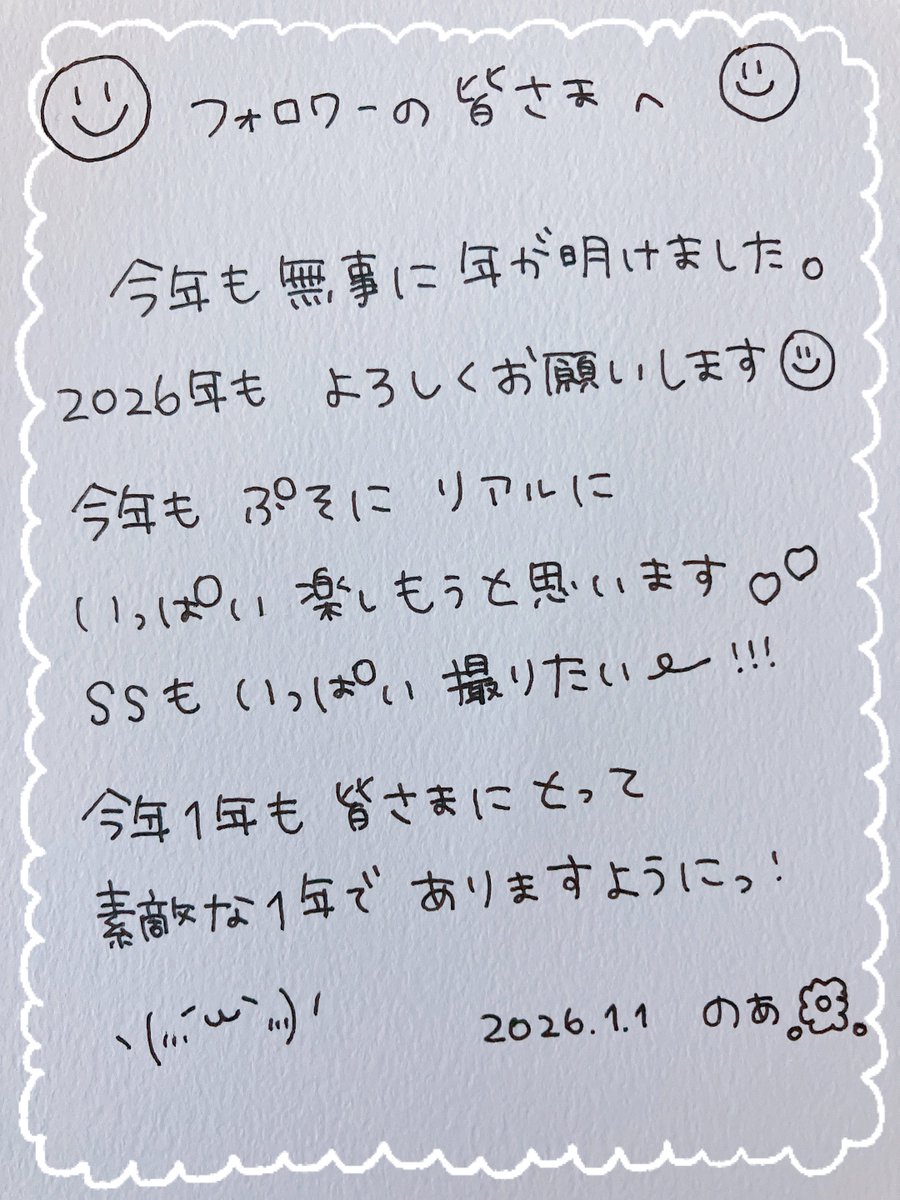 フォロワーの皆さまへ
今年も無事に年が明けました。
2026年も よろしくお願いします
今年も ぷそに リアルに
いっぱい楽しもうと思います♡♡
SSも いっぱい 撮りたい〜!!!
今年1年も 皆さまにとって
素敵な1年で ありますようにっ!
ヽ(,,,´ω`,,,)ノ
2026.1.1 のあ